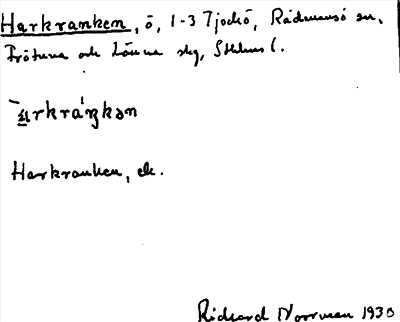 Harkranken, ö, 1-3 Tjockö, Rådmansö sn,
Frötuna och Länna skg, Sthlms l.
arkráŋkən
Harkranken, ek.
Rickard Norrman 1930